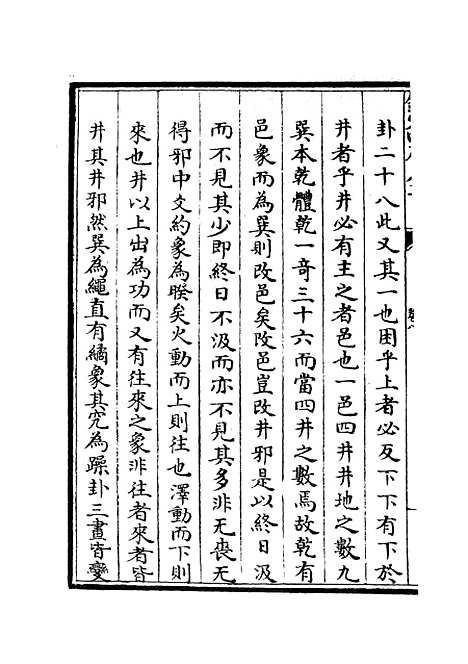 卦二十八此又其一也困乎上者必反下下有下於
井者乎井必有主之者邑也一邑四井井地之數九
巽本乾體乾一奇三十六而當四井之數焉故乾有
邑象而為巽則改邑矣改邑豈改井邪是以終日汲
而不見其少即終日不汲而亦不見其多非无喪无
得邪中文約象為睽矣火動而上則往也澤動而下則
來也井以上出為功而又有往來之象非往者來者皆
井其井邪然巽為繩直有繘象其究為躁卦三畫皆變